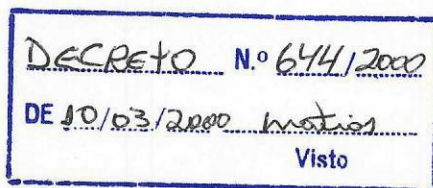 DECRETO N.º 644/2000
DE 10/03/2000 Matias
Visto